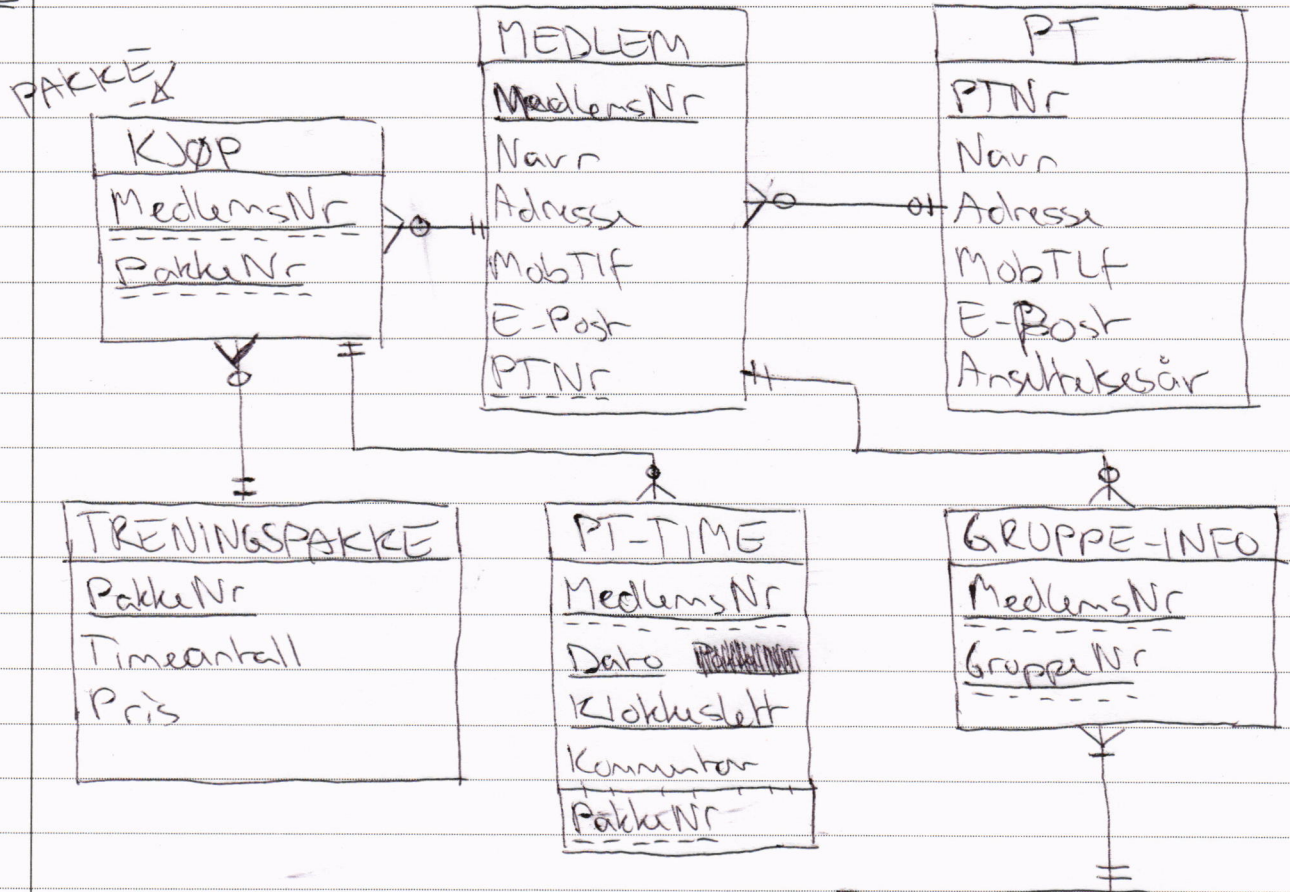 PAKKE
KJØP
MedlemsNr
PakkeNr
MEDLEM
MedlemsNr
Navn
Adresse
MobTlf
E-Post
PTNr
PT
PTNr
Navn
Adresse
MobTLf
E-Post
Ansettelsesår
TRENINGSPAKKE
PakkeNr
Timeantall
Pris
PT-TIME
MedlemsNr
Dato
Klokkeslett
Kommentar
PakkeNr
GRUPPE-INFO
MedlemsNr
GruppeNr